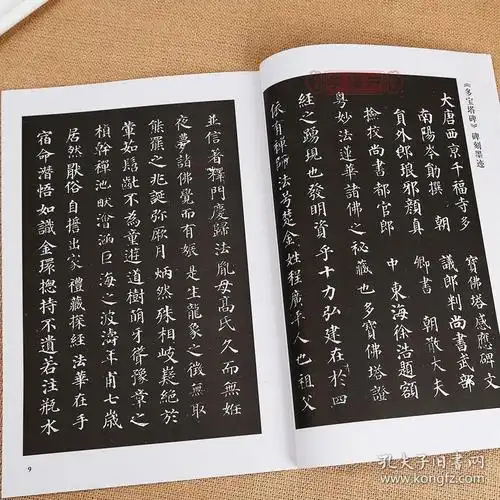 《多宝塔碑》碑刻墨迹
大唐西京千福寺多寶佛塔感應碑文
南陽岑勛撰 朝議郎判尚書武部
員外郎琅邪顏真卿書 朝散大夫
撿挍尚書都官郎中東海徐浩題額
粵妙法蓮華諸佛之秘藏也多寶佛塔證
經之踴現也發明資乎十力弘建在於四
依有禪師法号楚金姓程廣平人也祖父
並信著釋門慶歸法胤母高氏久而無姙
夜夢諸佛覺而有娠是生龍象之徵無取
熊羆之兆誕弥厥月炳然殊相岐嶷絕於
葷茹髫齔不為童遊道樹萌牙聳豫章之
楨幹禪池畎澮涵巨海之波濤年甫七歲
居然猒俗自誓出家禮藏探經法華在手
宿命潛悟如識金環揔持不遺若注瓶水
9
孔夫子旧书网
www.kongfz.com